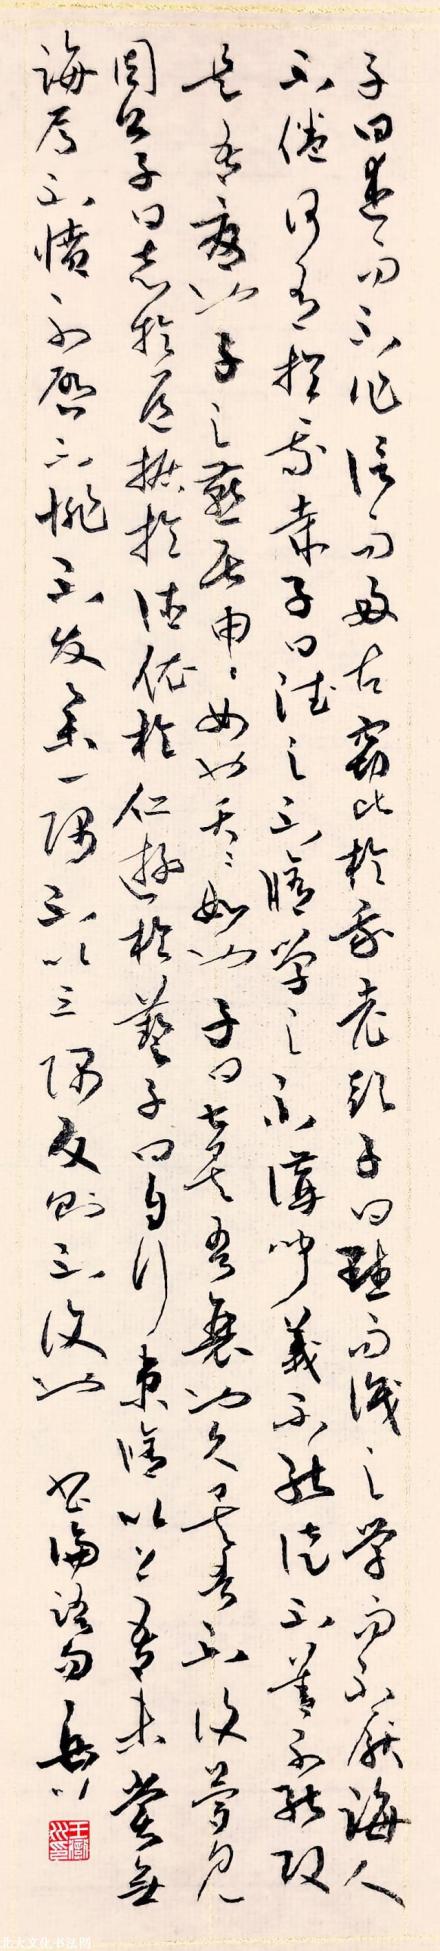 子曰述而不作信而好古竊比於我老彭子曰默而識之學而不厭誨人
不倦何有於我哉子曰德之不脩學之不講聞義不能徙不善不能改
是吾憂也子之燕居申〻如也夭〻如也子曰甚矣吾衰也久矣吾不復夢見
周公子曰志於道據於德依於仁遊於藝子曰自行束脩以上吾未嘗無
誨焉不憤不啟不悱不發舉一隅不以三隅反則不復也 書論語句 岳川
王岳川印
北大文化书法网